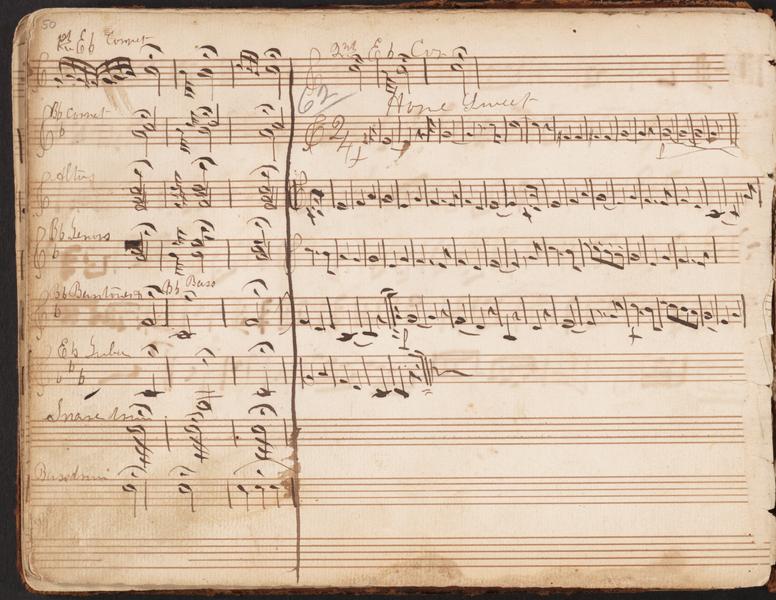 50
1st Eb Cornet
2nd Eb Cor
Bb Cornet
62
2/4
Altus
Bb Tenors
Bb Baritones
Bb Bass
Eb Tuba
Snare drum
Bass drum